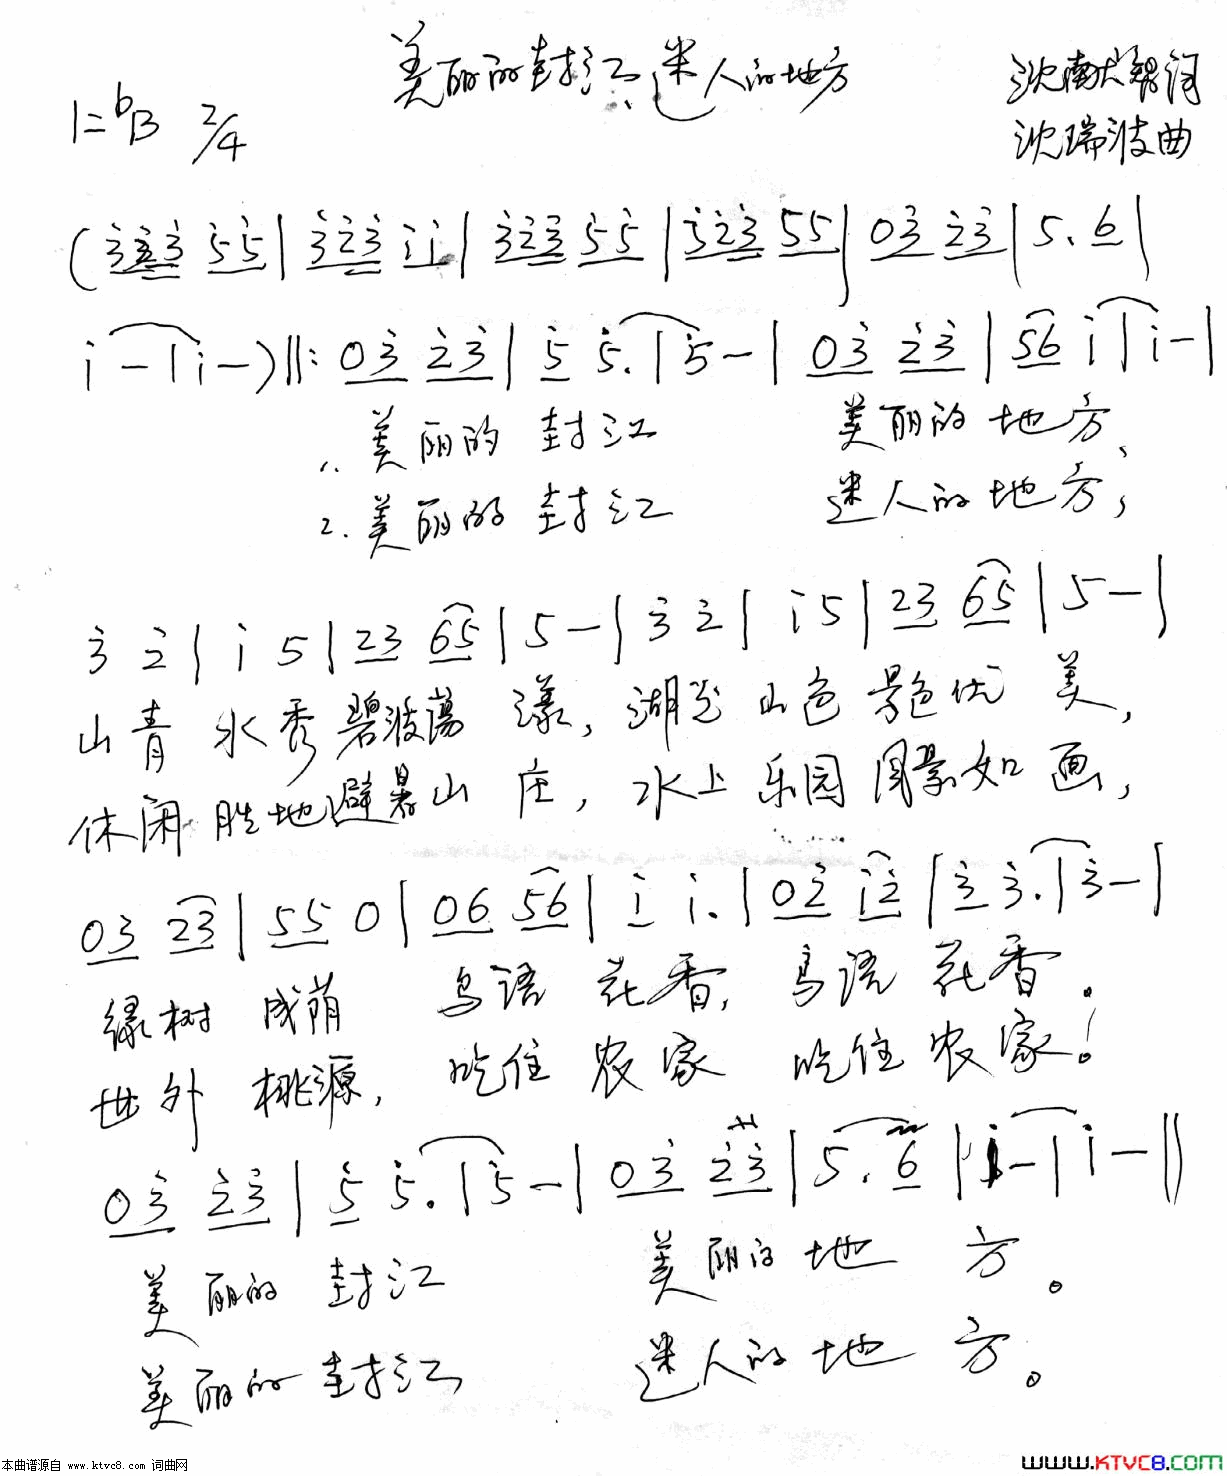 美丽的封江、迷人的地方
1=bB 2/4
沈南大 词
沈瑞波曲
(3̇3̇3̇ 5̇5̇|3̇2̇3̇ i i|3̇2̇3̇ 5̇5̇|3̇2̇3̇ 55|03̇ 2̇3̇|5. 6|
i -|i -)‖: 03̇ 2̇3̇|5̇ 5̇.|5̇ -|03̇ 2̇3̇|56 i|i -|
1. 美丽的 封江 美丽的 地方、
2. 美丽的 封江 迷人的 地方,
3̇ 2̇|i 5|23 65|5 -|3̇ 2̇|i 5|23 65|5 -|
山青 水秀 碧波荡 漾, 湖光 山色 景色优 美,
休闲 胜地 避暑山 庄, 水上 乐园 风景如 画,
03 23|55 0|06 56|i i.|02̇ i2̇|3̇ 3̇.|3̇ -|
绿树 成荫 鸟语 花香, 鸟语 花香.
世外 桃源, 吃住 农家 吃住 农家!
03̇ 2̇3̇|5̇ 5̇.|5̇ -|03̇ 2̇3̇|5. 6|i -|i -‖
美丽的 封江 美丽的 地 方。
美丽的 封江 迷人的 地 方。
本曲谱源自 www.ktvc8.com 词曲网
www.KTVC8.com